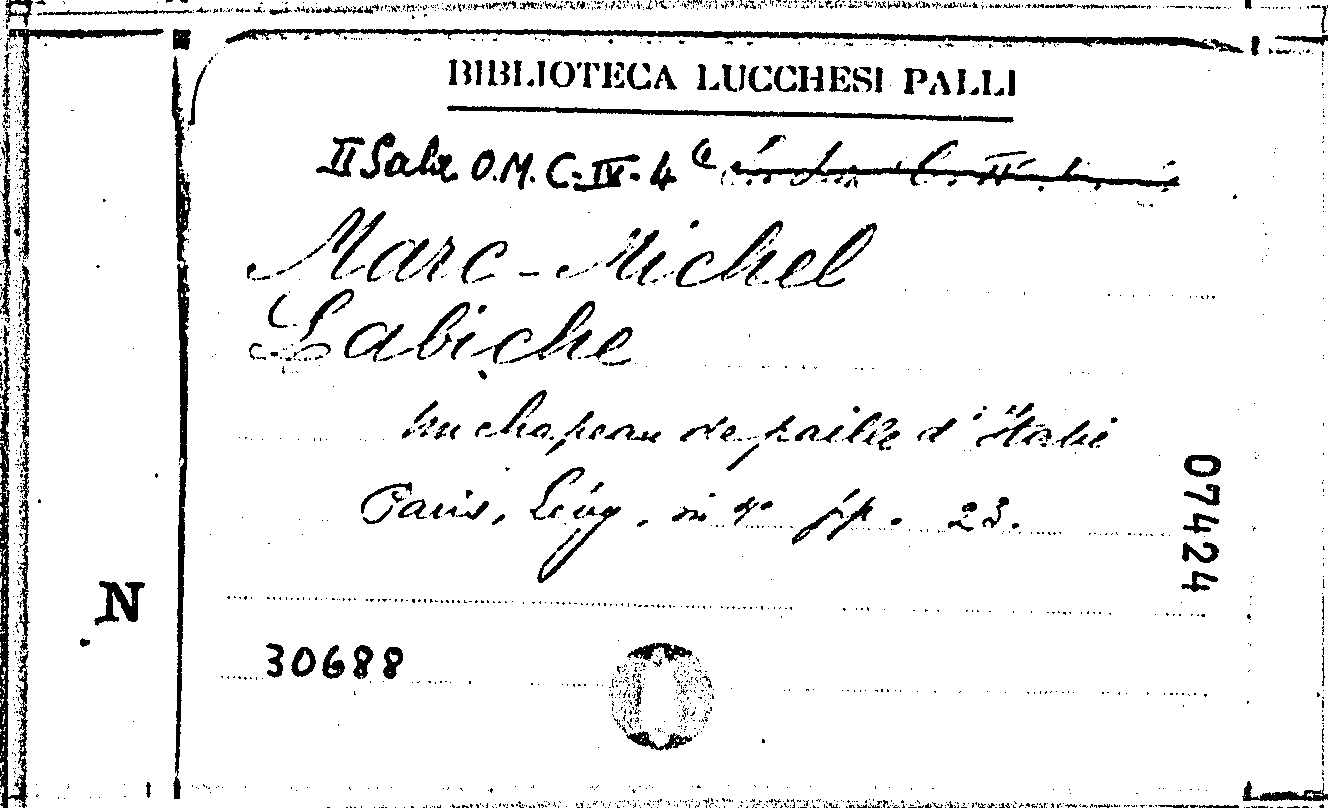 BIBLIOTECA LUCCHESI PALLI
II Sala O.M. C-IV-4
Marc-Michel
Labiche
Un chapeau de paille d'Italie
Paris, Lévy, in 4° pp. 23.
07424
N
30688